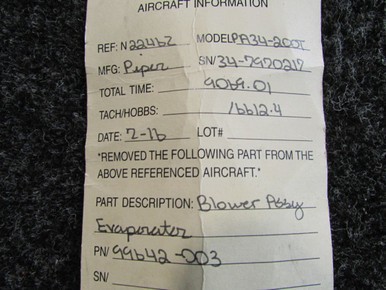 AIRCRAFT INFORMATION
REF: N22467 MODEL PA34-200T
MFG: Piper S/N/34-7920217
TOTAL TIME: 9069.01
TACH/HOBBS: 16612.4
DATE: 7-16 LOT#
*REMOVED THE FOLLOWING PART FROM THE
ABOVE REFERENCED AIRCRAFT.*
PART DESCRIPTION: Blower Assy
Evaporator
PN/ 99642-003
SN/